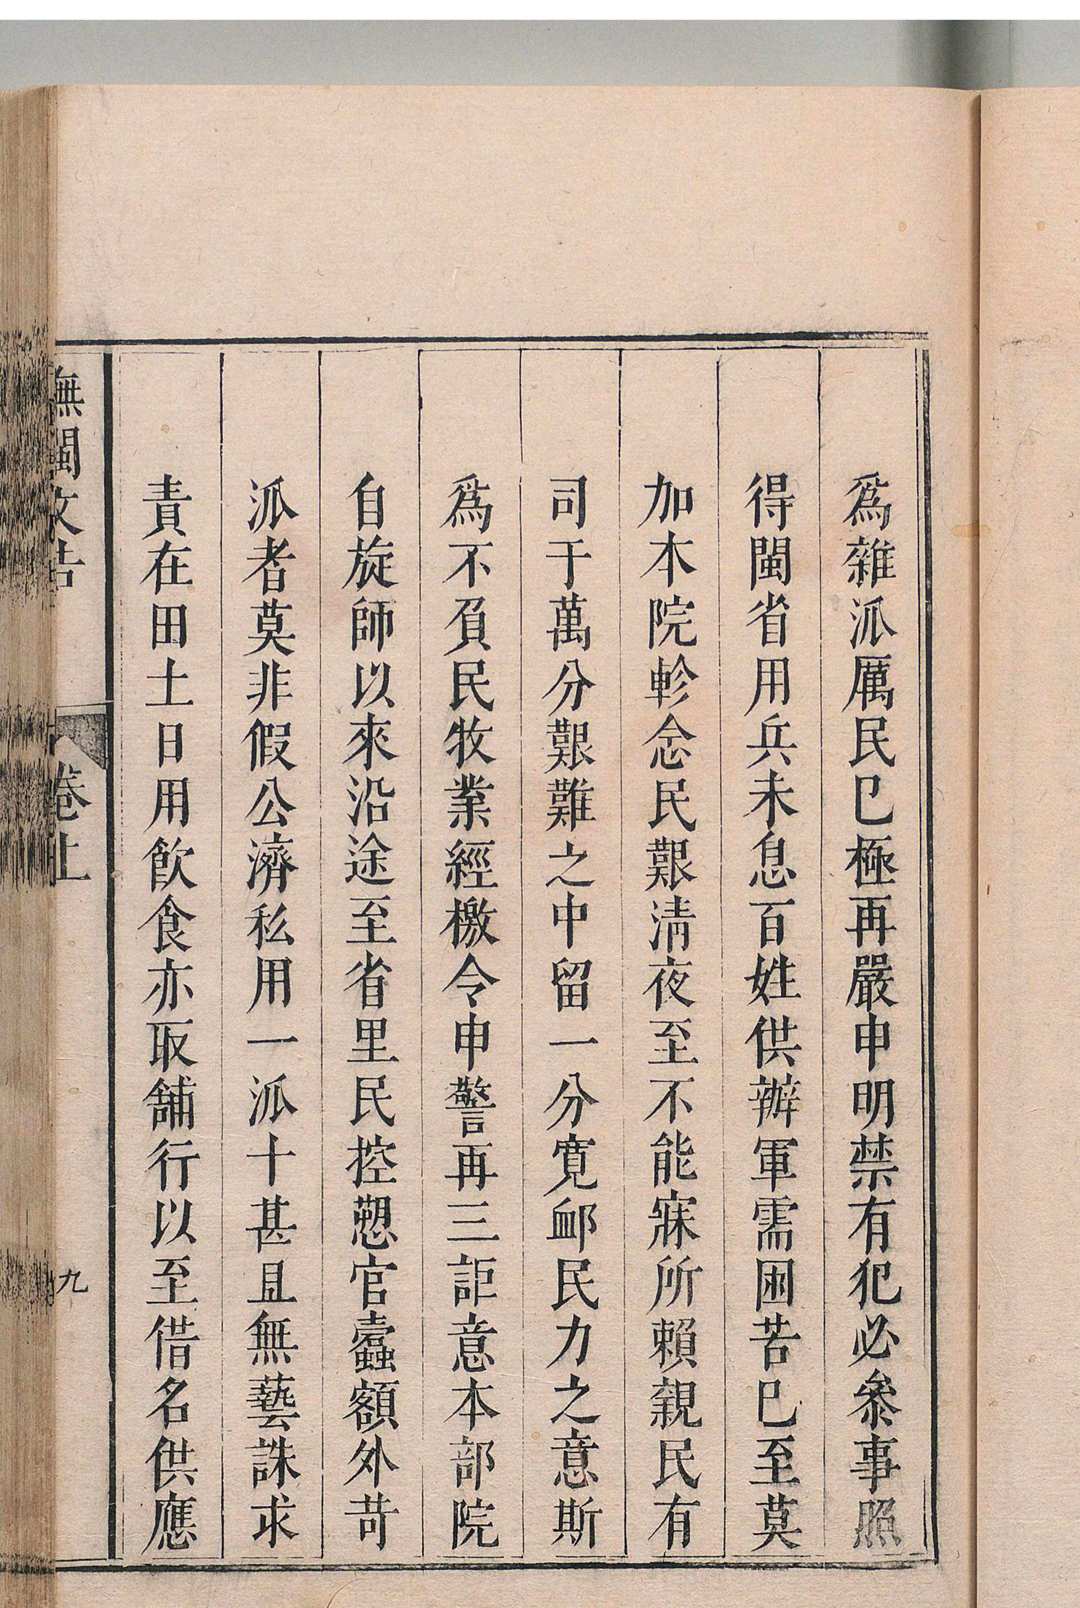 為雜派厲民已極再嚴申明禁有犯必叅事照
得閩省用兵未息百姓供辦軍需困苦已至莫
加本院軫念民艱清夜至不能寐所賴親民有
司于萬分艱難之中留一分寬䘏民力之意斯
為不負民牧業經檄令申警再三詎意本部院
自旋師以來沿途至省里民控愬官蠹額外苛
派者莫非假公濟私用一派十甚且無藝誅求
責在田土日用飲食亦取舖行以至借名供應
撫閩文告
卷上
九